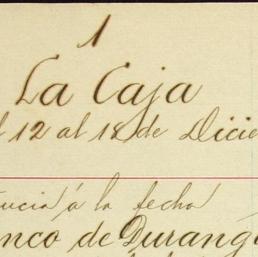 1
La Caja
l 12 al 18 de Dicie
tucia á la fecha
nco de Durang